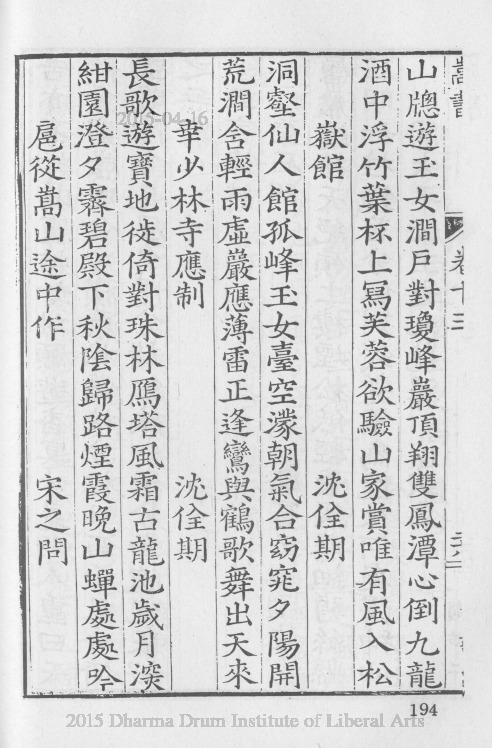 嵩書
卷十三
山牕遊玉女澗戶對瓊峰巖頂翔雙鳳潭心倒九龍
酒中浮竹葉杯上寫芙蓉欲驗山家賞唯有風入松
嶽館 沈佺期
洞壑仙人館孤峰玉女臺空濛朝氣合窈窕夕陽開
荒澗含輕雨虛巖應薄雷正逢鸞與鶴歌舞出天來
幸少林寺應制 沈佺期
長歌遊寶地徙倚對珠林鴈塔風霜古龍池歲月深
紺園澄夕霽碧殿下秋陰歸路煙霞晚山蟬處處吟
扈從嵩山途中作 宋之問
2015-04-16
194
2015 Dharma Drum Institute of Liberal Arts